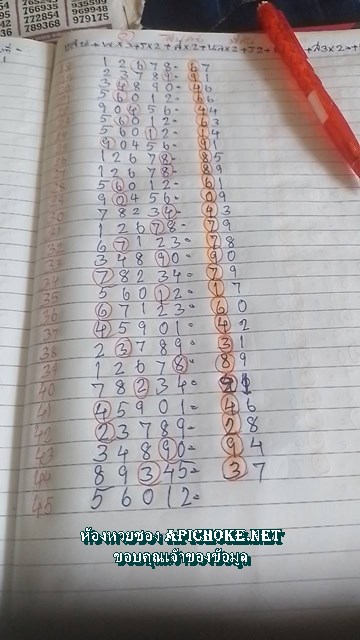 1 2 6 7 8 = 6 7
2 3 7 8 9 = 9 1
3 4 8 9 0 = 4 6
5 6 0 1 2 = 6 6
9 0 4 5 6 = 4 4
5 6 0 1 2 = 6 3
5 6 0 1 2 = 1 4
9 0 4 5 6 = 9 1
1 2 6 7 8 = 8 5
1 2 6 7 8 = 8 9
5 6 0 1 2 = 6 1
9 0 4 5 6 = 0 9
30 7 8 2 3 4 = 4 3
31 1 2 6 7 8 = 7 9
32 6 7 1 2 3 = 7 8
33 3 4 8 9 0 = 9 0
34 7 8 2 3 4 = 7 9
35 5 6 0 1 2 = 1 7
36 6 7 1 2 3 = 6 0
37 4 5 9 0 1 = 4 2
38 2 3 7 8 9 = 3 1
39 1 2 6 7 8 = 8 9
40 7 8 2 3 4 =
41 4 5 9 0 1 = 4 6
42 2 3 7 8 9 = 2 8
43 3 4 8 9 0 = 9 4
44 8 9 3 4 5 = 3 7
45 5 6 0 1 2 =
ห้องหวยซอง APICHOKE.NET
ขอบคุณเจ้าของข้อมูล